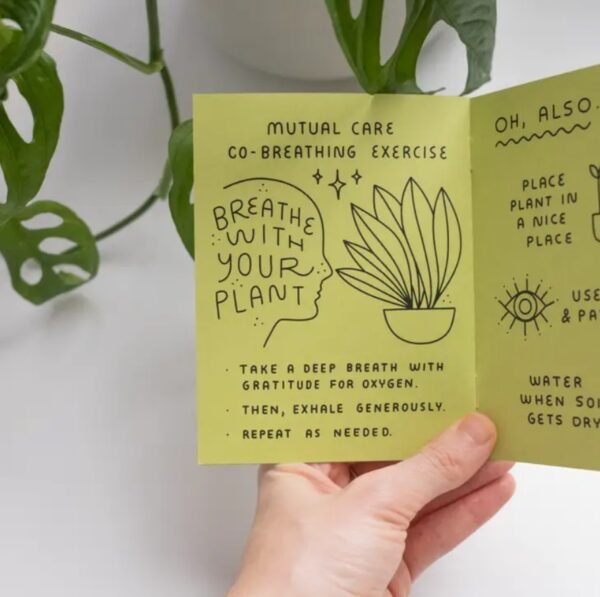 MUTUAL CARE
CO-BREATHING EXERCISE
BREATHE
WITH
YOUR
PLANT
· TAKE A DEEP BREATH WITH
GRATITUDE FOR OXYGEN.
· THEN, EXHALE GENEROUSLY.
· REPEAT AS NEEDED.
OH, ALSO.
PLACE
PLANT IN
A NICE
PLACE
USE
&
WATER
WHEN
GETS DRY